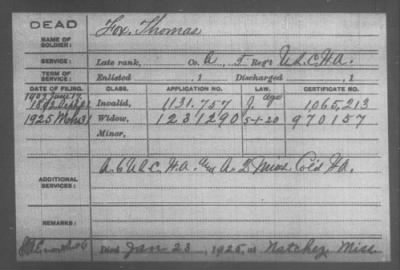 DEAD
NAME OF SOLDIER:
Fox, Thomas
SERVICE:
Late rank, Co. A, 5 Reg't U.S.C.H.A.
TERM OF SERVICE:
Enlisted , 1 Discharged , 1
DATE OF FILING. CLASS. APPLICATION NO. LAW. CERTIFICATE NO.
1907 June 17
1892 Invalid, 1131.757 Age 1065,213
1925 Mch 31 Widow, 1231290 5-1-20 970157
Minor,
ADDITIONAL SERVICES:
A. 6 U.S.C. H.A. and A. 2 Miss. Col'd H.A.
REMARKS:
Died Jan 23, 1925, at Natchez Miss.